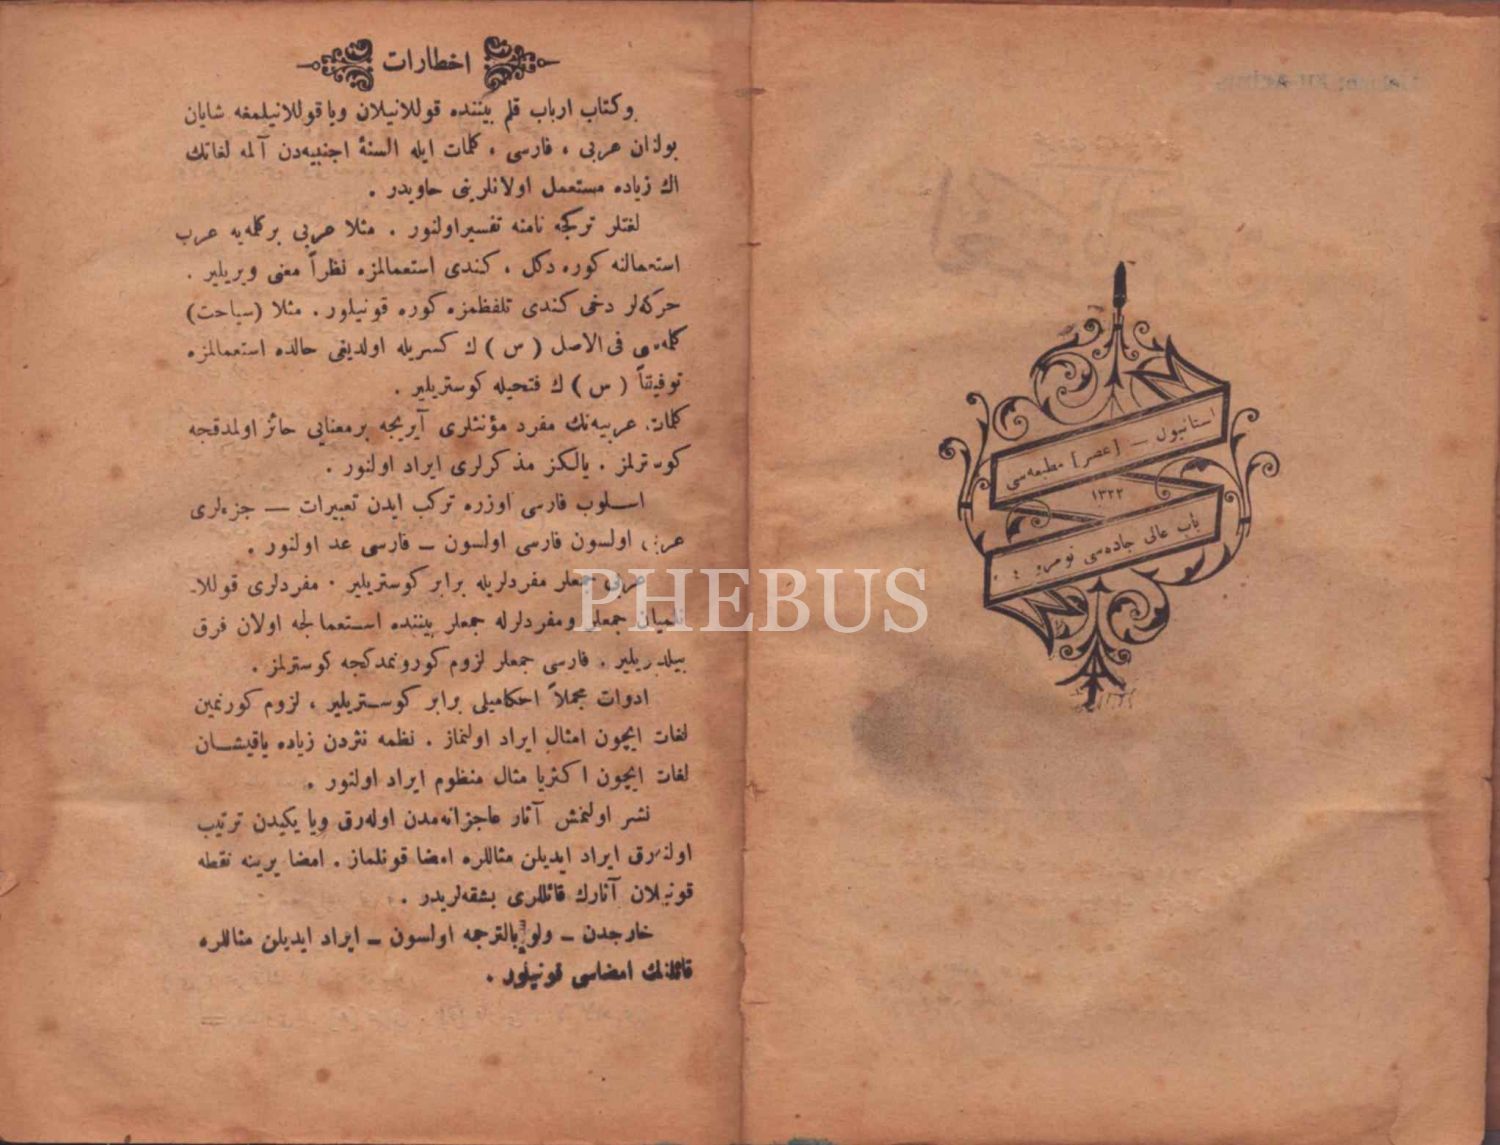 استانبول — [عصر] مطبعه‌سی
١٣٢٢
باب عالی جاده‌سی نومرو
اخطارات
بو كتاب ارباب قلم بیننده قوللانیلان ویا قوللانیلمغه شایان
بولنان عربی ، فارسی ، كلمات ایله السنهٔ اجنبیه‌دن آلمه لغاتك
اك زیاده مستعمل اولانلرینی حاویدر .
لغتلر تركجه نامنه تفسیر اولنور . مثلا عربی بركلمه‌یه عرب
استعمالنه كوره دكل ، كندی استعمالمزه نظراً معنی ویریلیر .
حركه‌لر دخی كندی تلفظمزه كوره قونیلور . مثلا (سیاحت)
كلمه‌سی فی‌الاصل ( س ) ك كسریله اولدیغی حالده استعمالمزه
توفیقاً ( س ) ك فتحیله كوستریلیر .
كلمات عربیه‌نك مفرد مؤنثلری آیریجه برمعنایی حائز اولمدقجه
كوسترلمز . یالكز مذكرلری ایراد اولنور .
اسلوب فارسی اوزره تركب ایدن تعبیرات — جزءلری
عربی اولسون فارسی اولسون — فارسی عد اولنور .
عربی جمعلر مفردلریله برابر كوستریلیر . مفردلری قوللا-
نلمیان جمعلر ومفردلرله جمعلر بیننده استعمالجه اولان فرق
بیلدیریلیر . فارسی جمعلر لزوم كورونمدكجه كوسترلمز .
ادوات مجملاً احكامیلی برابر كوستریلیر ، لزوم كورنمین
لغات ایچون امثال ایراد اولنماز . نظمه نثردن زیاده یاقیشان
لغات ایچون اكثریا مثال منظوم ایراد اولنور .
نشر اولنمش آثار عاجزانه‌مدن اوله‌رق ویا یكیدن ترتیب
اولنه‌رق ایراد ایدیلن مثاللره امضا قونلماز . امضا یرینه نقطه
قونیلان آثارك قائللری بشقه‌لریدر .
خارجدن — ولو بالترجمه اولسون — ایراد ایدیلن مثاللره
قائلنك امضاسی قونیلور .
PHEBUS